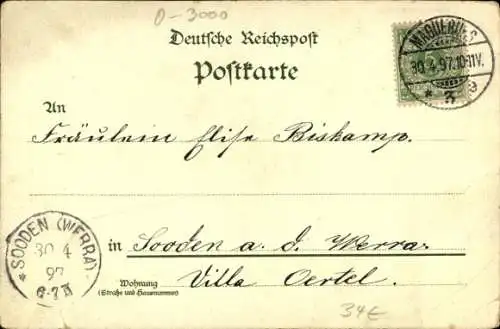 D-3000
Deutsche Reichspost
Postkarte
30.4.97.10-11V.
* 3
An
Fräulein Elise Biskamp.
SOODEN (WERRA)
30 4
97
6-7 N
in Sooden a. d. Werra.
Wohnung
(Straße und Hausnummer)
Villa Oertel.
34€